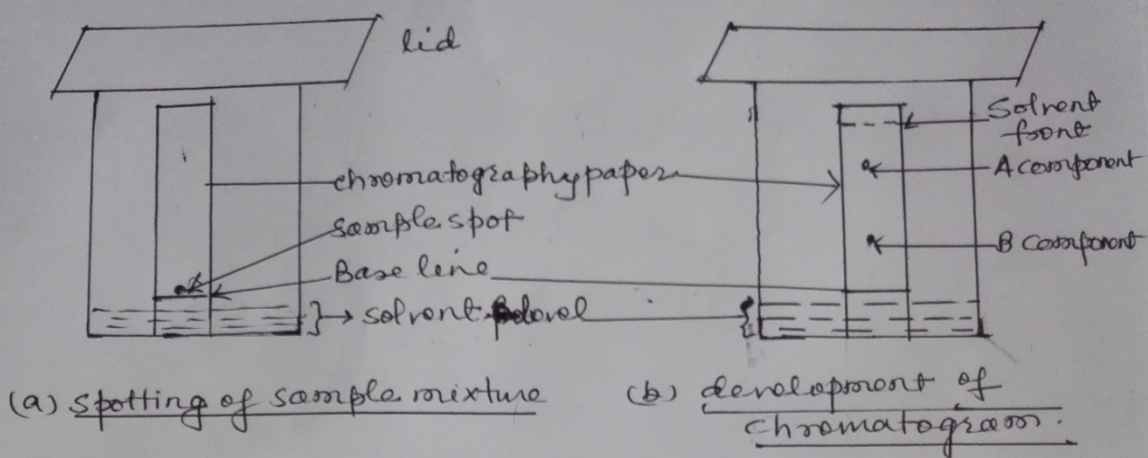 lid
Solvent
front
chromatography paper
A component
sample spot
B component
Base line
solvent level
(a) spotting of sample mixture
(b) development of
chromatogram.